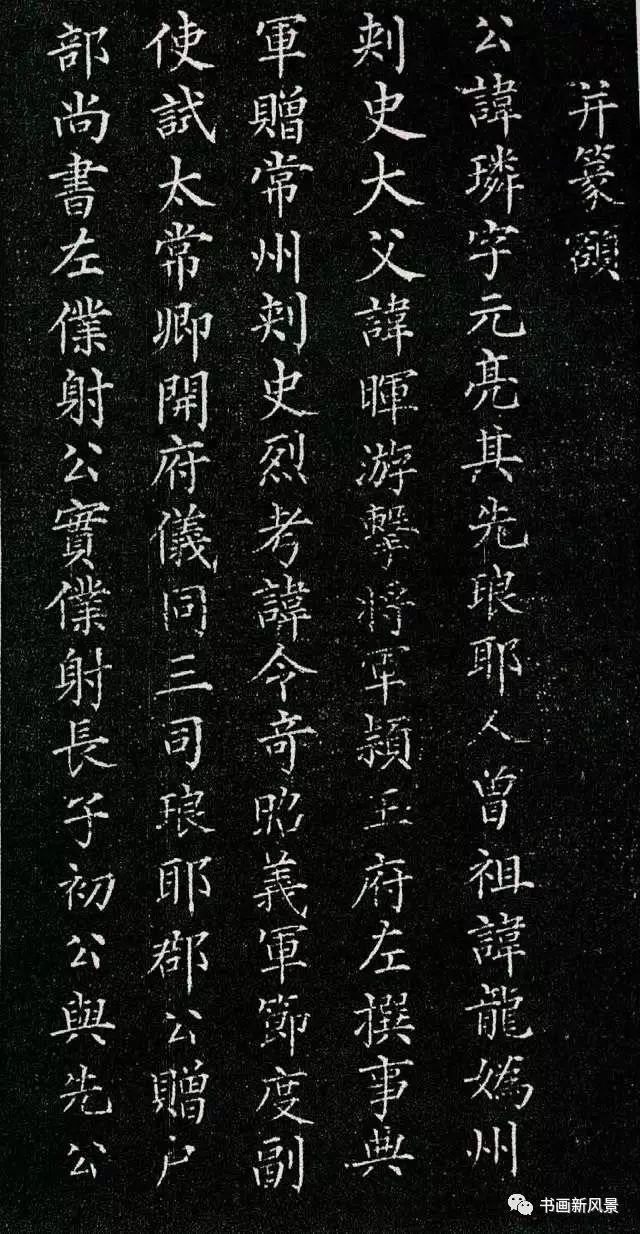 并篆額
公諱璘字元亮其先琅耶人曾祖諱龍媯州
刾史大父諱暉游擊將軍潁王府左撰事典
軍贈常州刾史烈考諱令奇昭義軍節度副
使試太常卿開府儀同三司琅耶郡公贈户
部尚書左僕射公實僕射長子初公與先公
书画新风景